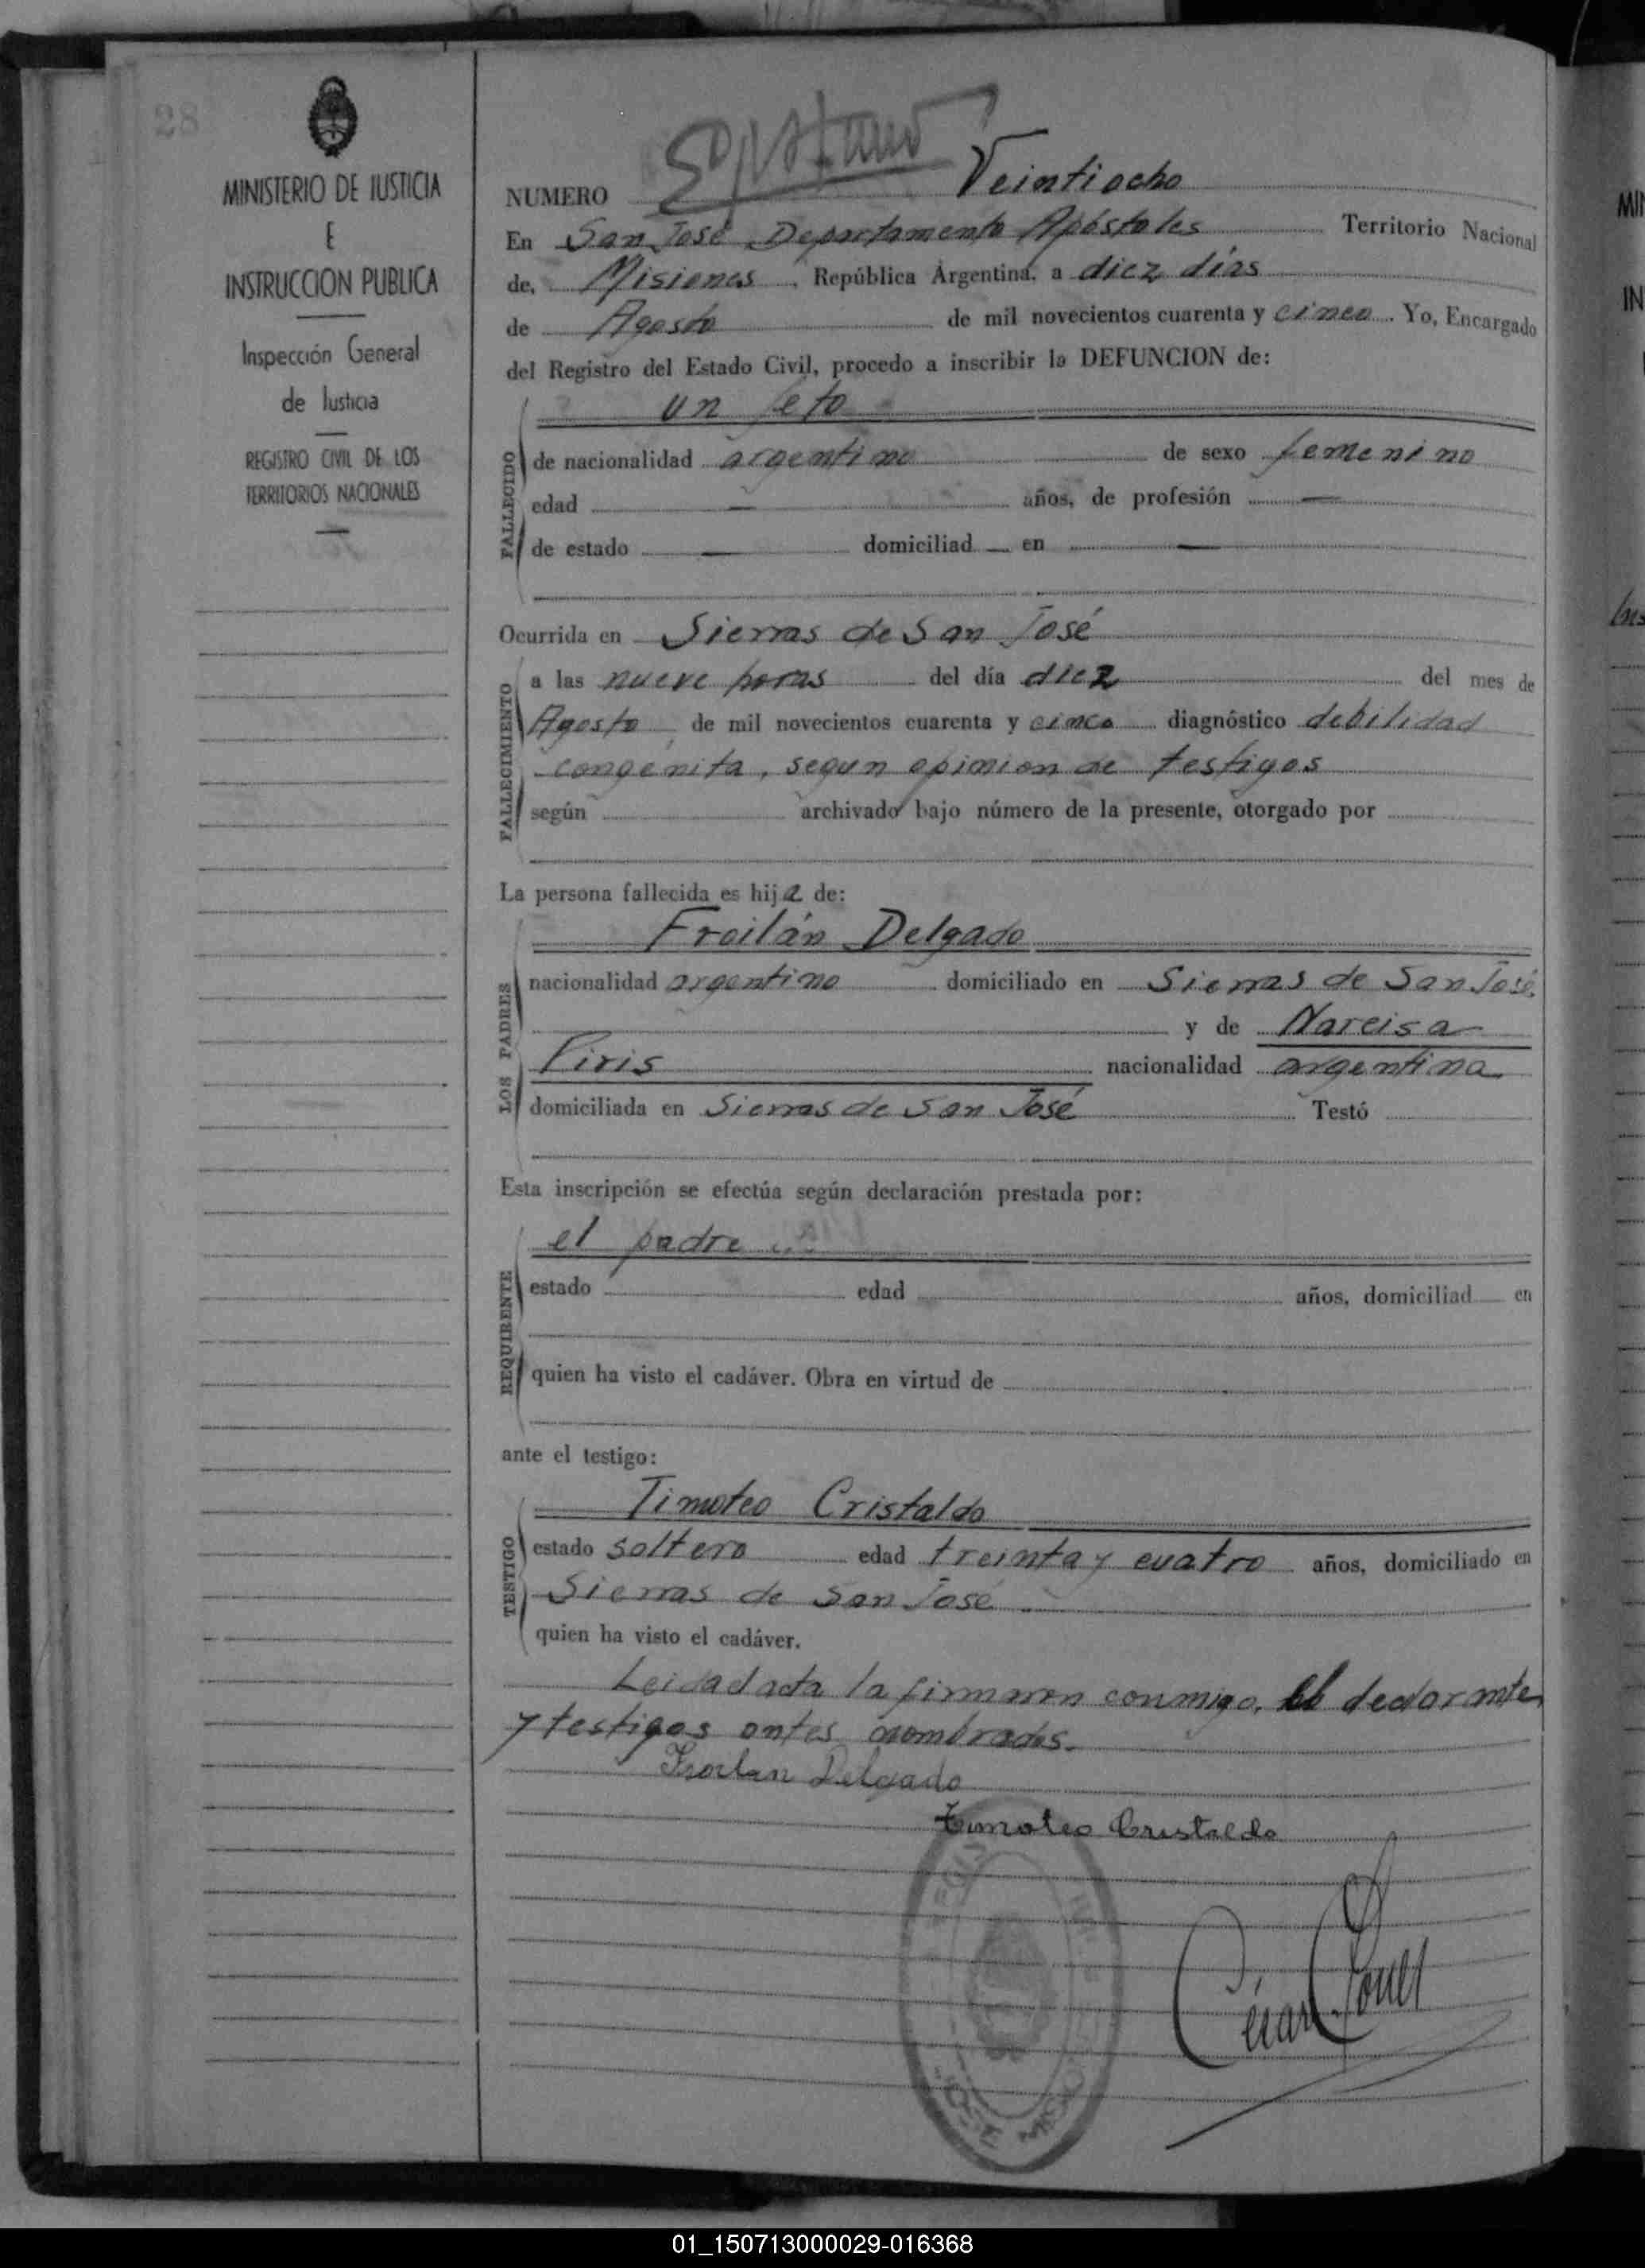 28
MINISTERIO DE JUSTICIA
E
INSTRUCCION PUBLICA
Inspección General
de Justicia
REGISTRO CIVIL DE LOS
TERRITORIOS NACIONALES
NUMERO Veintiocho
En San José Departamento Apóstoles Territorio Nacional
de, Misiones, República Argentina, a diez días
de Agosto de mil novecientos cuarenta y cinco. Yo, Encargado
del Registro del Estado Civil, procedo a inscribir la DEFUNCION de:
un feto
FALLECIDO
de nacionalidad argentino de sexo femenino
edad — años, de profesión —
de estado — domiciliad — en —
Ocurrida en Sierras de San José
FALLECIMIENTO
a las nueve horas del día diez del mes de
Agosto de mil novecientos cuarenta y cinco diagnóstico debilidad
congénita, segun opinion de testigos
según archivado bajo número de la presente, otorgado por
La persona fallecida es hija de:
Froilán Delgado
LOS PADRES
nacionalidad argentino domiciliado en Sierras de San José.
y de Narcisa
Piris nacionalidad argentina
domiciliada en Sierras de San José Testó
Esta inscripción se efectúa según declaración prestada por:
el padre
REQUIRENTE
estado edad años, domiciliad en
quien ha visto el cadáver. Obra en virtud de
ante el testigo:
Timoteo Cristaldo
TESTIGO
estado soltero edad treinta y cuatro años, domiciliado en
Sierras de San José
quien ha visto el cadáver.
Leida el acta la firmaron conmigo, el declarante
y testigos antes nombrados.
Froilan Delgado
Timoteo Cristaldo
César
01_150713000029-016368